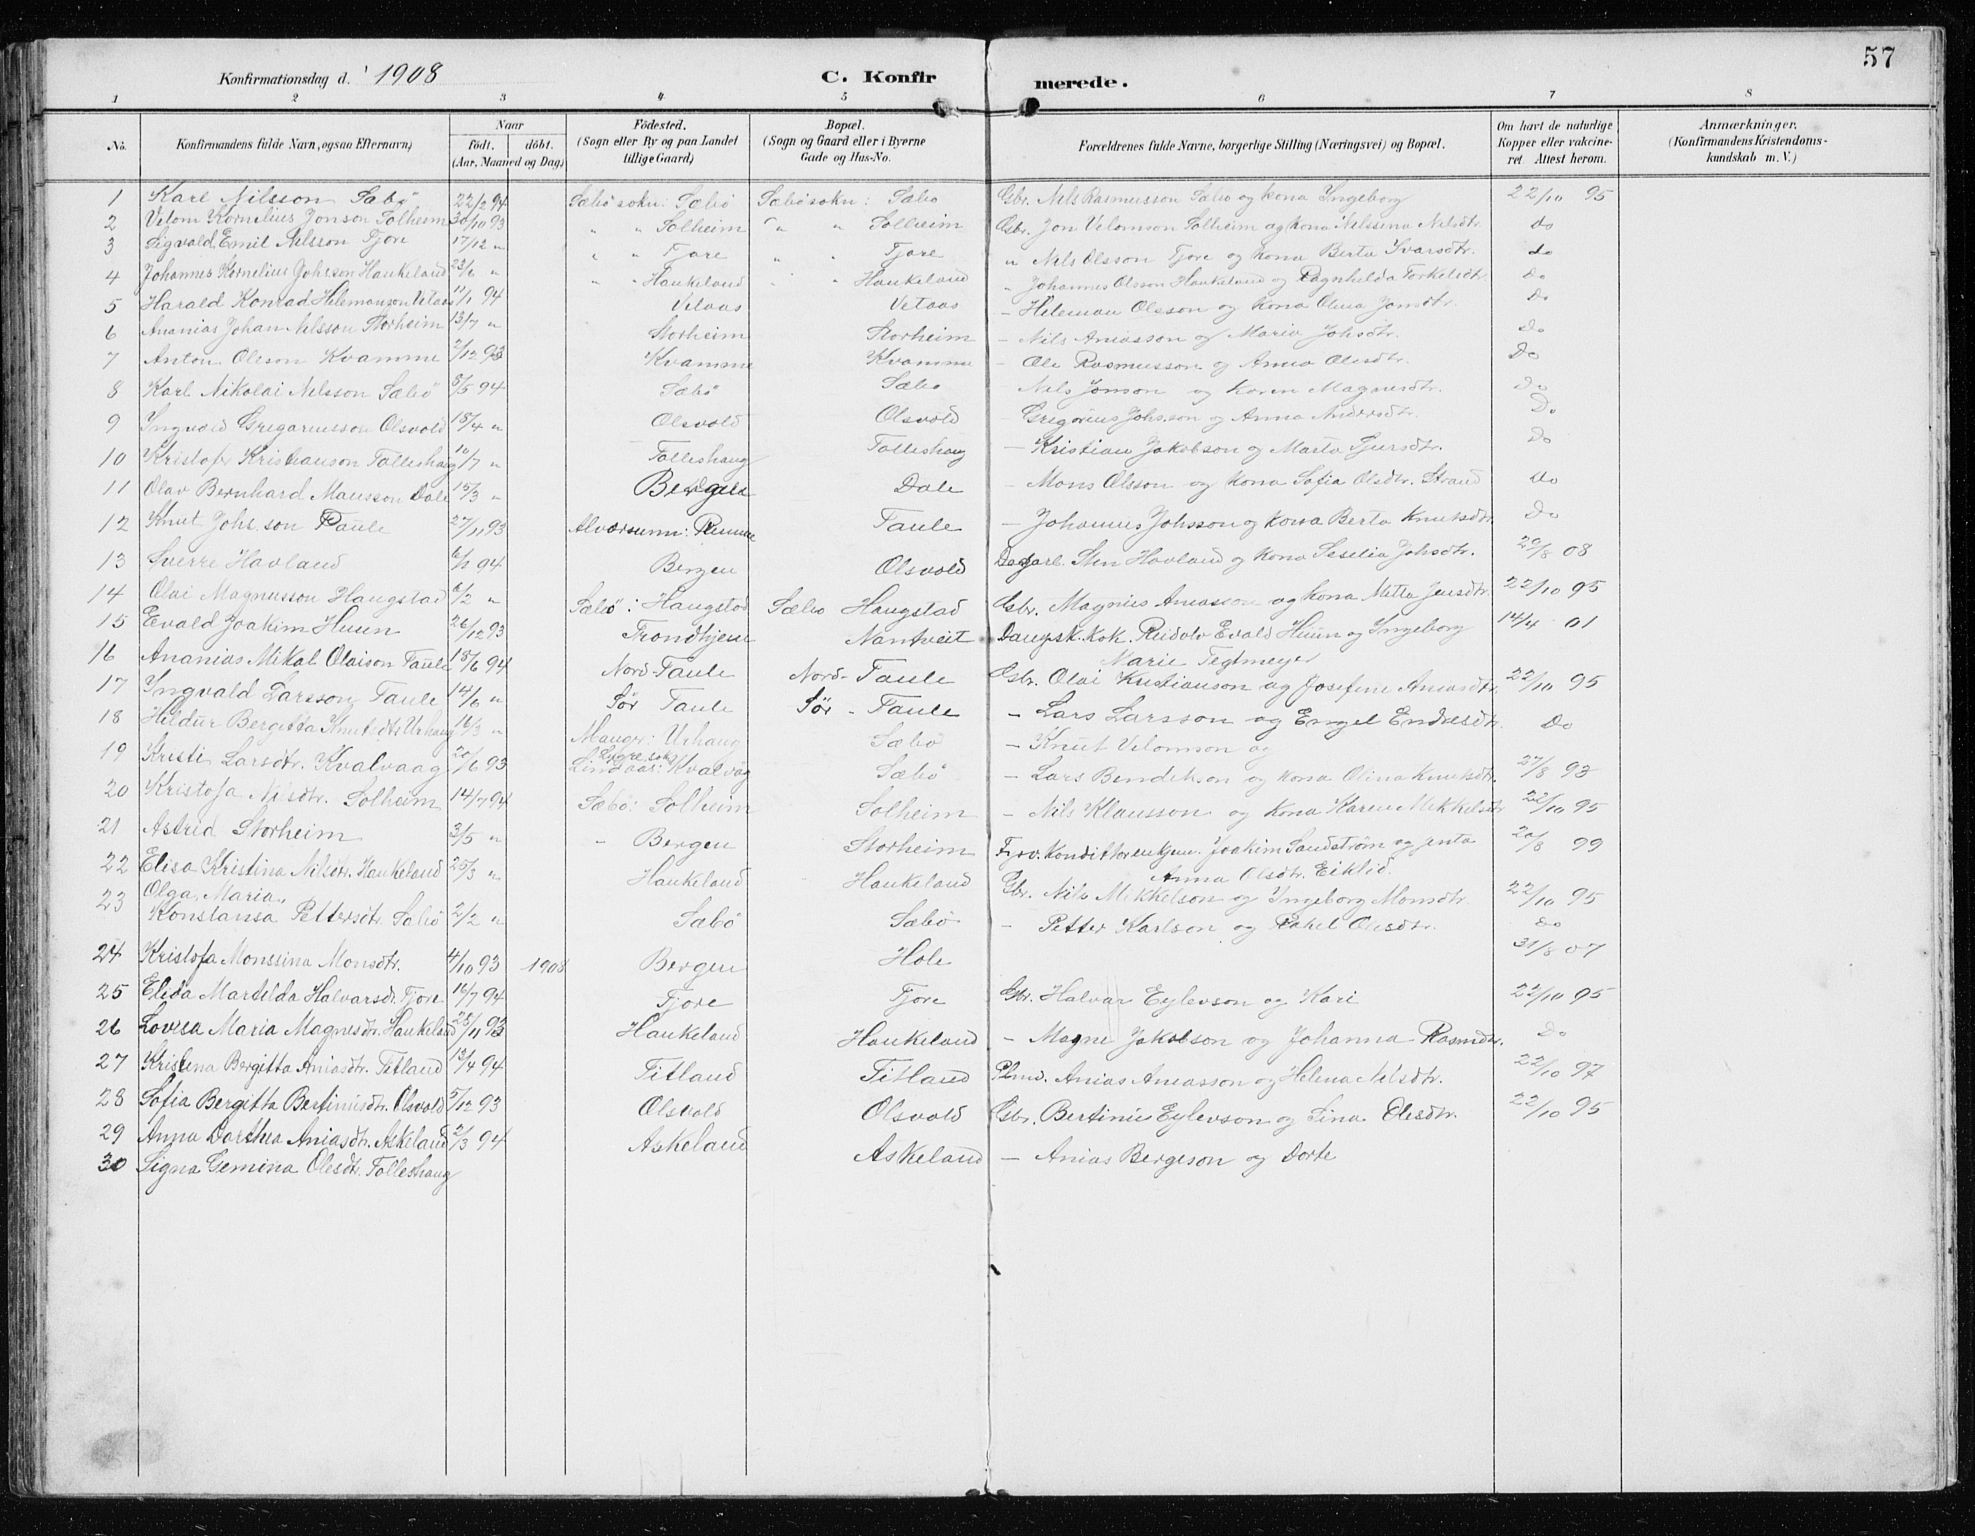 57
Konfirmationsdag d. 1908 C. Konfirmerede.
1 2 3 4 5 6 7 8
No. Konfirmandens fulde Navn, ogsaa Efternavn) Naar født. døbt. (Aar, Maaned og Dag) Fødested. (Sogn eller By og paa Landet tillige Gaard) Bopæl. (Sogn og Gaard eller i Byerne Gade og Hus-No. Forældrenes fulde Navne, borgerlige Stilling (Næringsvei) og Bopæl. Om havt de naturlige Kopper eller vakcineret. Attest herom. Anmærkninger. (Konfirmandens Kristendomskundskab m. V.)
1 Karl Nilsson Sæbö 22/2 94 Sæbö sokn: Sæbö Sæbö sokn: Sæbö Gbr. Nils Rasmussen Sæbö og kona Ingeborg 22/10 95
2 Velom Kornelius Jonson Solheim 30/10 93 " " Solheim " " Solheim Gbr. Jon Velomson Solheim og kona Nilssina Nilsdtr. do
3 Sigvald Emil Nilsson Fjore 17/12 " " " Fjore " " Fjore " Nils Olsson Fjore og kona Berta Ivarsdtr. do
4 Johannes Kornelius Johsson Haukeland 23/6 " " " Haukeland " " Haukeland " Johannes Olsson Haukeland og Ragnhilda Torkelsdtr. do
5 Harald Konrad Helemanson Vetaas 11/1 94 Vetaas Vetaas – Heleman Olsson og kona Olina Jonsdtr. do
6 Ananias Johan Nilsson Storheim 13/7 " Storheim Storheim – Nils Aneasson og Maria Johsdtr. Do
7 Anton Olsson Kvamme 2/12 93 Kvamme Kvamme – Ole Rasmusson og Anna Olesdtr. Do
8 Karl Nikolai Nilsson Sæbö 8/5 94 Sæbö Sæbö – Nils Jonson og Karen Magnesdtr. Do
9 Ingvald Gregoriusson Olsvold 18/4 " Olsvold Olsvold – Gregorius Johsson og Anna Andersdtr. Do
10 Kristofer Kristianson Tolleshaug 10/7 " Tolleshaug Tolleshaug – Kristian Jakobson og Marta Sjursdtr. Do
11 Olav Bernhard Mansson Dale 15/3 " Bergen Dale – Mons Olsson og kona Sofia Olsdtr. Strand Do
12 Knut Johs.son Taule 27/11 93 Alversunn: Taule – Johannes Johsson og kona Berta Knutsdtr. Do
13 Sverre Havland 6/1 94 Bergen Olsvold Dagarb. Sten Havland og kona Seselia Johsdtr. 20/8 08
14 Olai Magnusson Haugstad 6/2 " Sæbö: Haugstad Sæbö Haugstad Gbr. Magnus Aneasson og kona Metta Jensdtr. 22/10 95
15 Evald Joakim Huun 26/12 93 Trondhjem Nantveit Dampsk. kok. Reidolv Evald Huun og Ingeborg Marie Tegtmeyer 14/4 01
16 Ananias Mikal Olaison Taule 18/6 94 Nord-Taule Nord-Taule Gbr. Olai Kristianson og Josefine Aneasdtr. 22/10 95
17 Ingvald Larsson Taule 14/6 " Sør Taule Sør - Taule – Lars Larsson og Engel Endresdtr. Do
18 Hildur Bergitta Knutsdtr. Urhaug 16/3 " Manger: Urhaug Sæbö – Knut Velomson og
19 Kristi Larsdtr. Kvalvaag 20/6 93 Lygre sok Lindaas: Kvalvåg Sæbö – Lars Bendikson og kona Olina Knutsdtr. 27/8 93
20 Kristofa Nilsdtr. Solheim 14/7 94 Sæbö: Solheim Solheim – Nils Klausson og kona Karen Mikkelsdtr 22/10 95
21 Astrid Storheim 3/5 " – Bergen Storheim Joakim Sandstrøm og jenta Anna Olsdtr. Eiklid. 20/8 99
22 Elisa Kristina Nilsdtr. Haukeland 25/3 " Haukeland Haukeland Gbr. Nils Mikkelson og Ingeborg Monsdtr. 22/10 95
23 Olga Maria Konstansa Pettersdtr. Sæbö 2/2 " Sæbö Sæbö – Petter Karlson og Rakel Olesdtr. do
24 Kristofa Monssina Monsdtr. 4/10 93 1908 Bergen Hole 31/8 07
25 Elida Martilda Halvarsdtr. Fjore 16/7 94 Fjore Fjore Gbr. Halvar Eylevson og Kari 22/10 95
26 Lovisa Maria Magnesdtr. Haukeland 28/11 93 Haukeland Haukeland – Magne Jakobson og Johanna Rasmdtr. Do
27 Kristina Bergitta Aniasdtr. Titland 13/4 94 Titland Titland Plmd. Anias Aneasson og Helena Nilsdtr. 22/10 97
28 Sofia Bergitta Bertinusdtr. Olsvold 5/12 93 Olsvold Olsvold Gbr. Bertinus Eylevson og Sina Olesdtr. 22/10 95
29 Anna Dorthea Aniasdtr. Askeland 2/3 94 Askeland Askeland – Anias Bergeson og Dorte
30 Signa Gemina Olesdtr. Tolleshaug